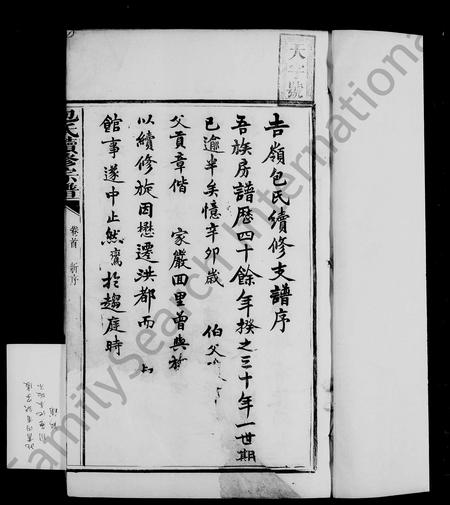 天字號
吉嶺包氏續修支譜序
吾族房譜歷四十餘年揆之三十年一世期
已逾半矣憶辛卯歲 伯父
父貢章偕 家嚴回里曾與族
以續修旋因懋遷洪都而
館事遂中止然鸞於趨庭時
包氏續修宗譜
卷首 新序
FamilySearch International